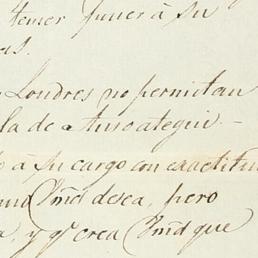 temer poner à su
as.
Londres no permitan
la de Ansoategui.-
à su cargo con exactitu
Vmd desea, pero
, y qe crea Vmd que